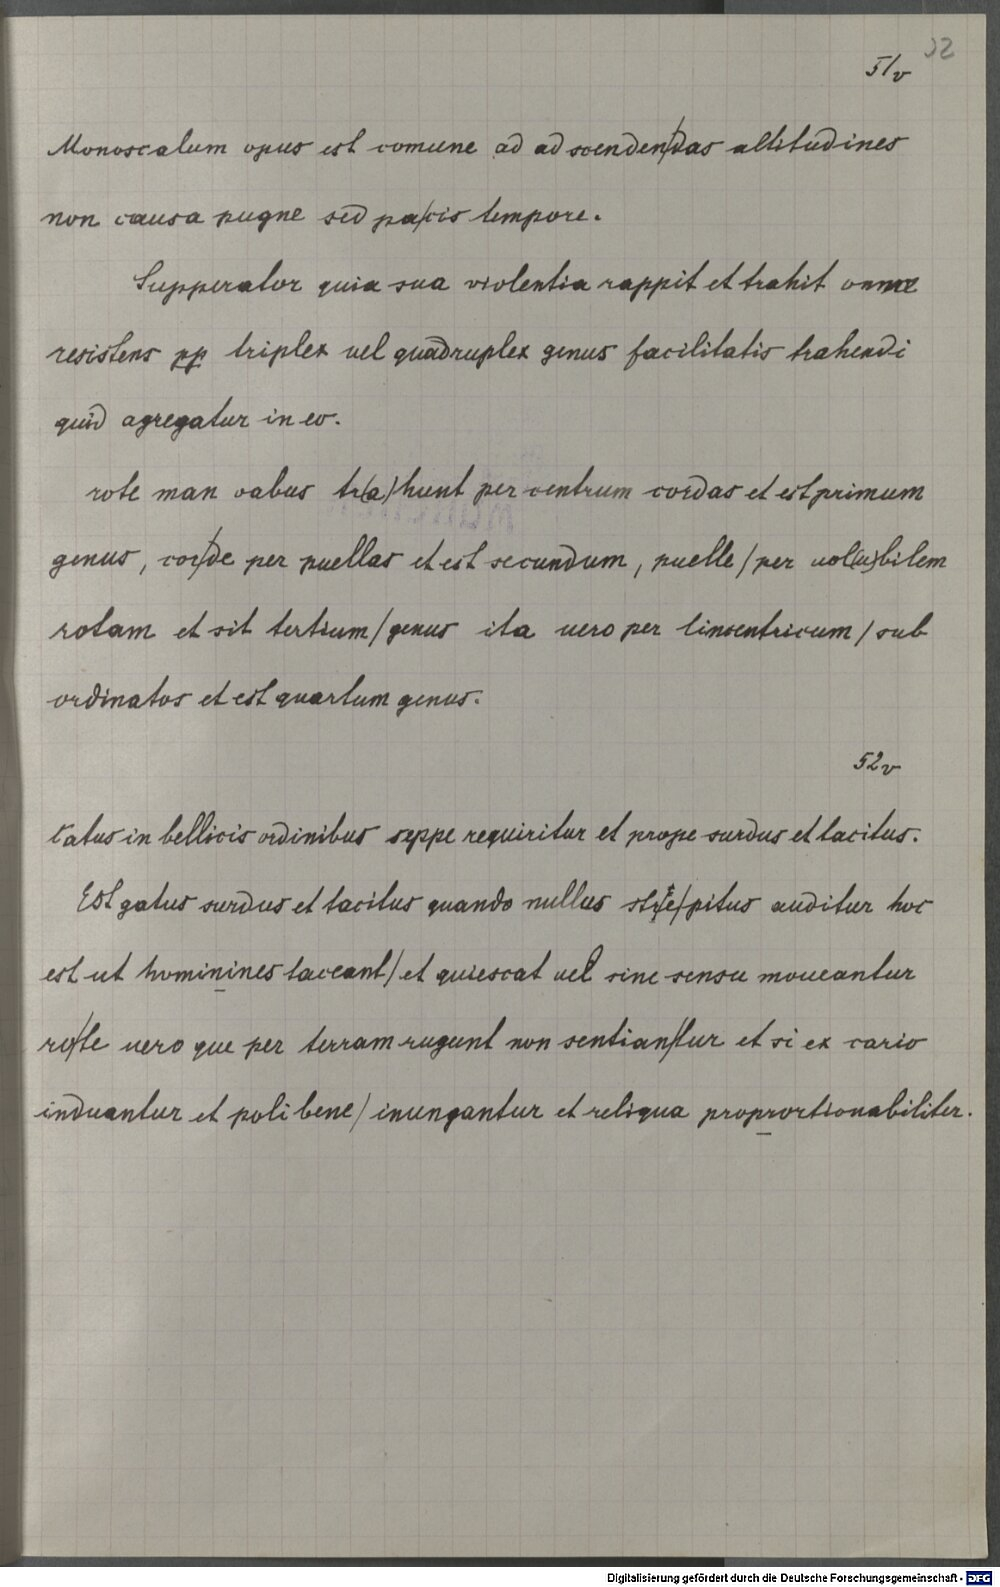 32
51v
Monoscalum opus est comune ad ad scenden/das altitudines
non causa pugne sed pa/cis tempore.
Supperator quia sua violentia rappit et trahit omne
resistens pp triplex uel quadruplex genus facilitatis trahendi
quid agregatur in eo.
rote man oabus tr(a)hunt per centrum cordas et est primum
genus, cor/de per puellas et est secundum, puelle/per uol(u)bilem
rotam et sit tertium/genus ita uero per lincentricum/sub
ordinatos et est quartum genus.
52v
tatus in bellicis ordinibus seppe requiritur et prope surdus et tacitus.
Est gatus surdus et tacitus quando nullus stre/pitus auditur hoc
est ut hominines taceant/et quiescat uel sine sensu moueantur
ro/te uero que per terram rugunt non sentian/tur et si ex cario
induantur et poli bene/inungantur et reliqua proprortionabiliter.
Digitalisierung gefördert durch die Deutsche Forschungsgemeinschaft - DFG